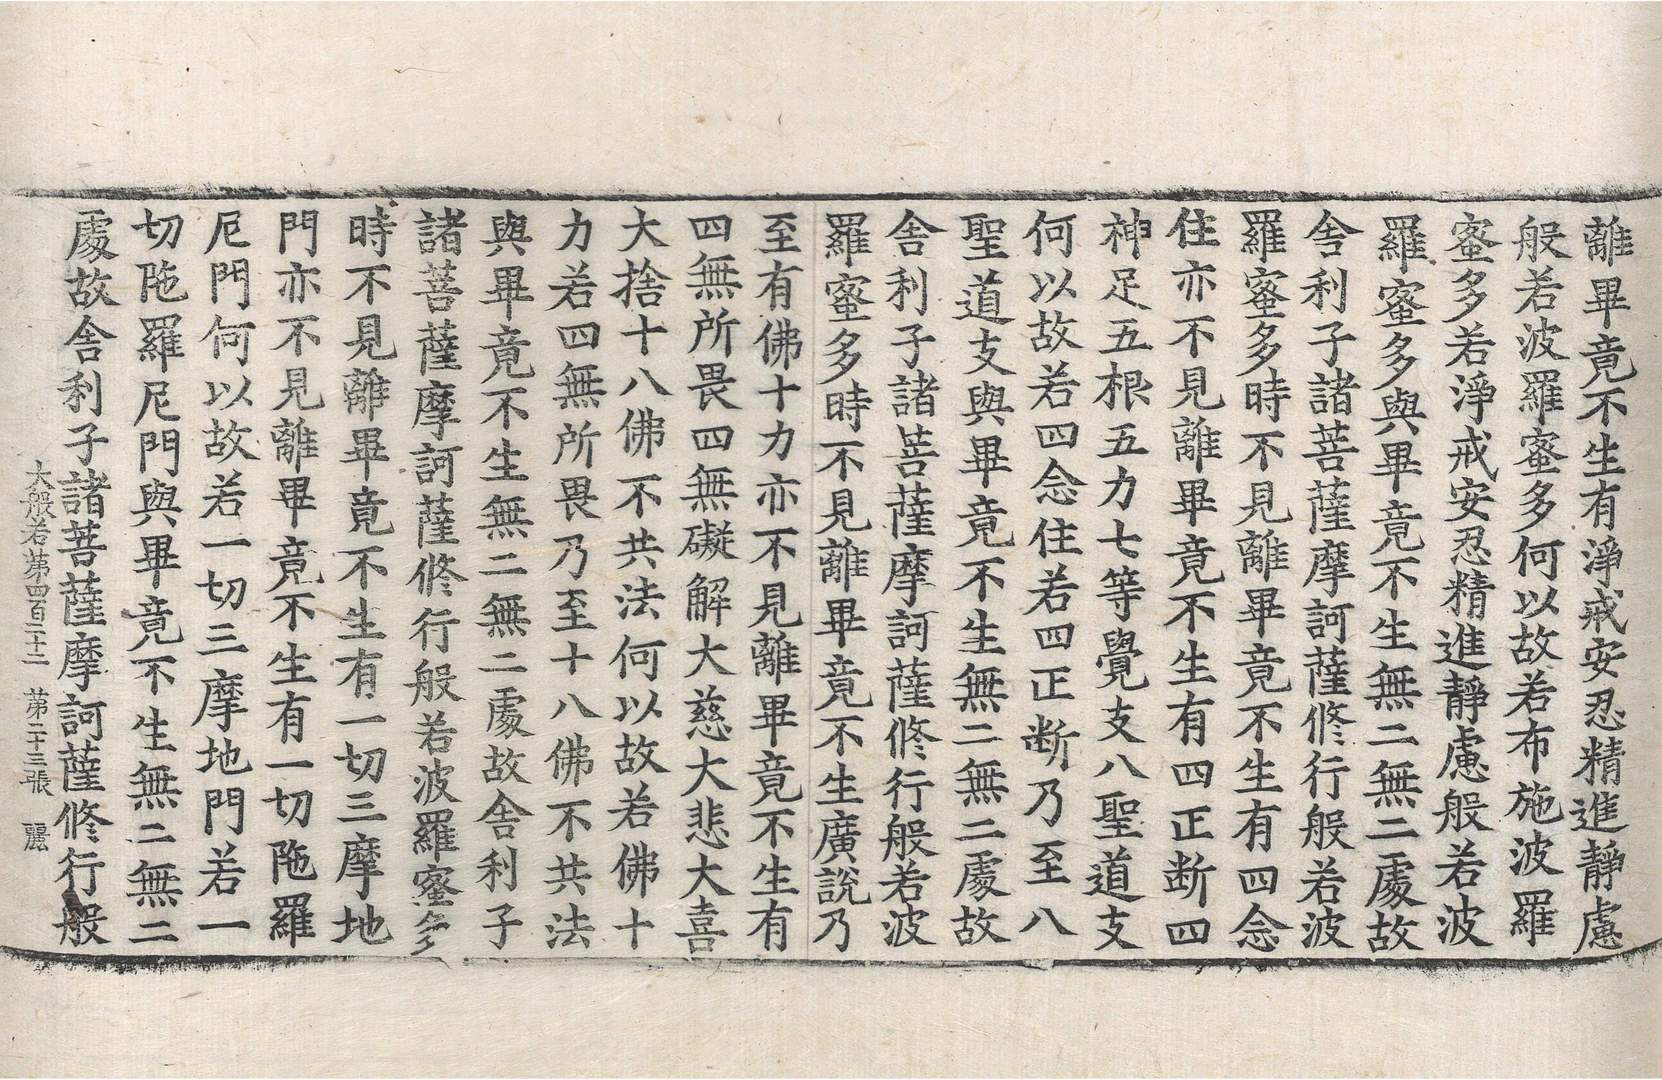 離畢竟不生有淨戒安忍精進靜慮
般若波羅蜜多何以故若布施波羅
蜜多若淨戒安忍精進靜慮般若波
羅蜜多與畢竟不生無二無二處故
舍利子諸菩薩摩訶薩修行般若波
羅蜜多時不見離畢竟不生有四念
住亦不見離畢竟不生有四正断四
神足五根五力七等覺支八聖道支
何以故若四念住若四正断乃至八
聖道支與畢竟不生無二無二處故
舍利子諸菩薩摩訶薩修行般若波
羅蜜多時不見離畢竟不生廣說乃
至有佛十力亦不見離畢竟不生有
四無所畏四無礙解大慈大悲大喜
大捨十八佛不共法何以故若佛十
力若四無所畏乃至十八佛不共法
與畢竟不生無二無二處故舍利子
諸菩薩摩訶薩修行般若波羅蜜多
時不見離畢竟不生有一切三摩地
門亦不見離畢竟不生有一切陁羅
尼門何以故若一切三摩地門若一
切陁羅尼門與畢竟不生無二無二
處故舍利子諸菩薩摩訶薩修行般
大般若第四百二十二 第二十三張 麗